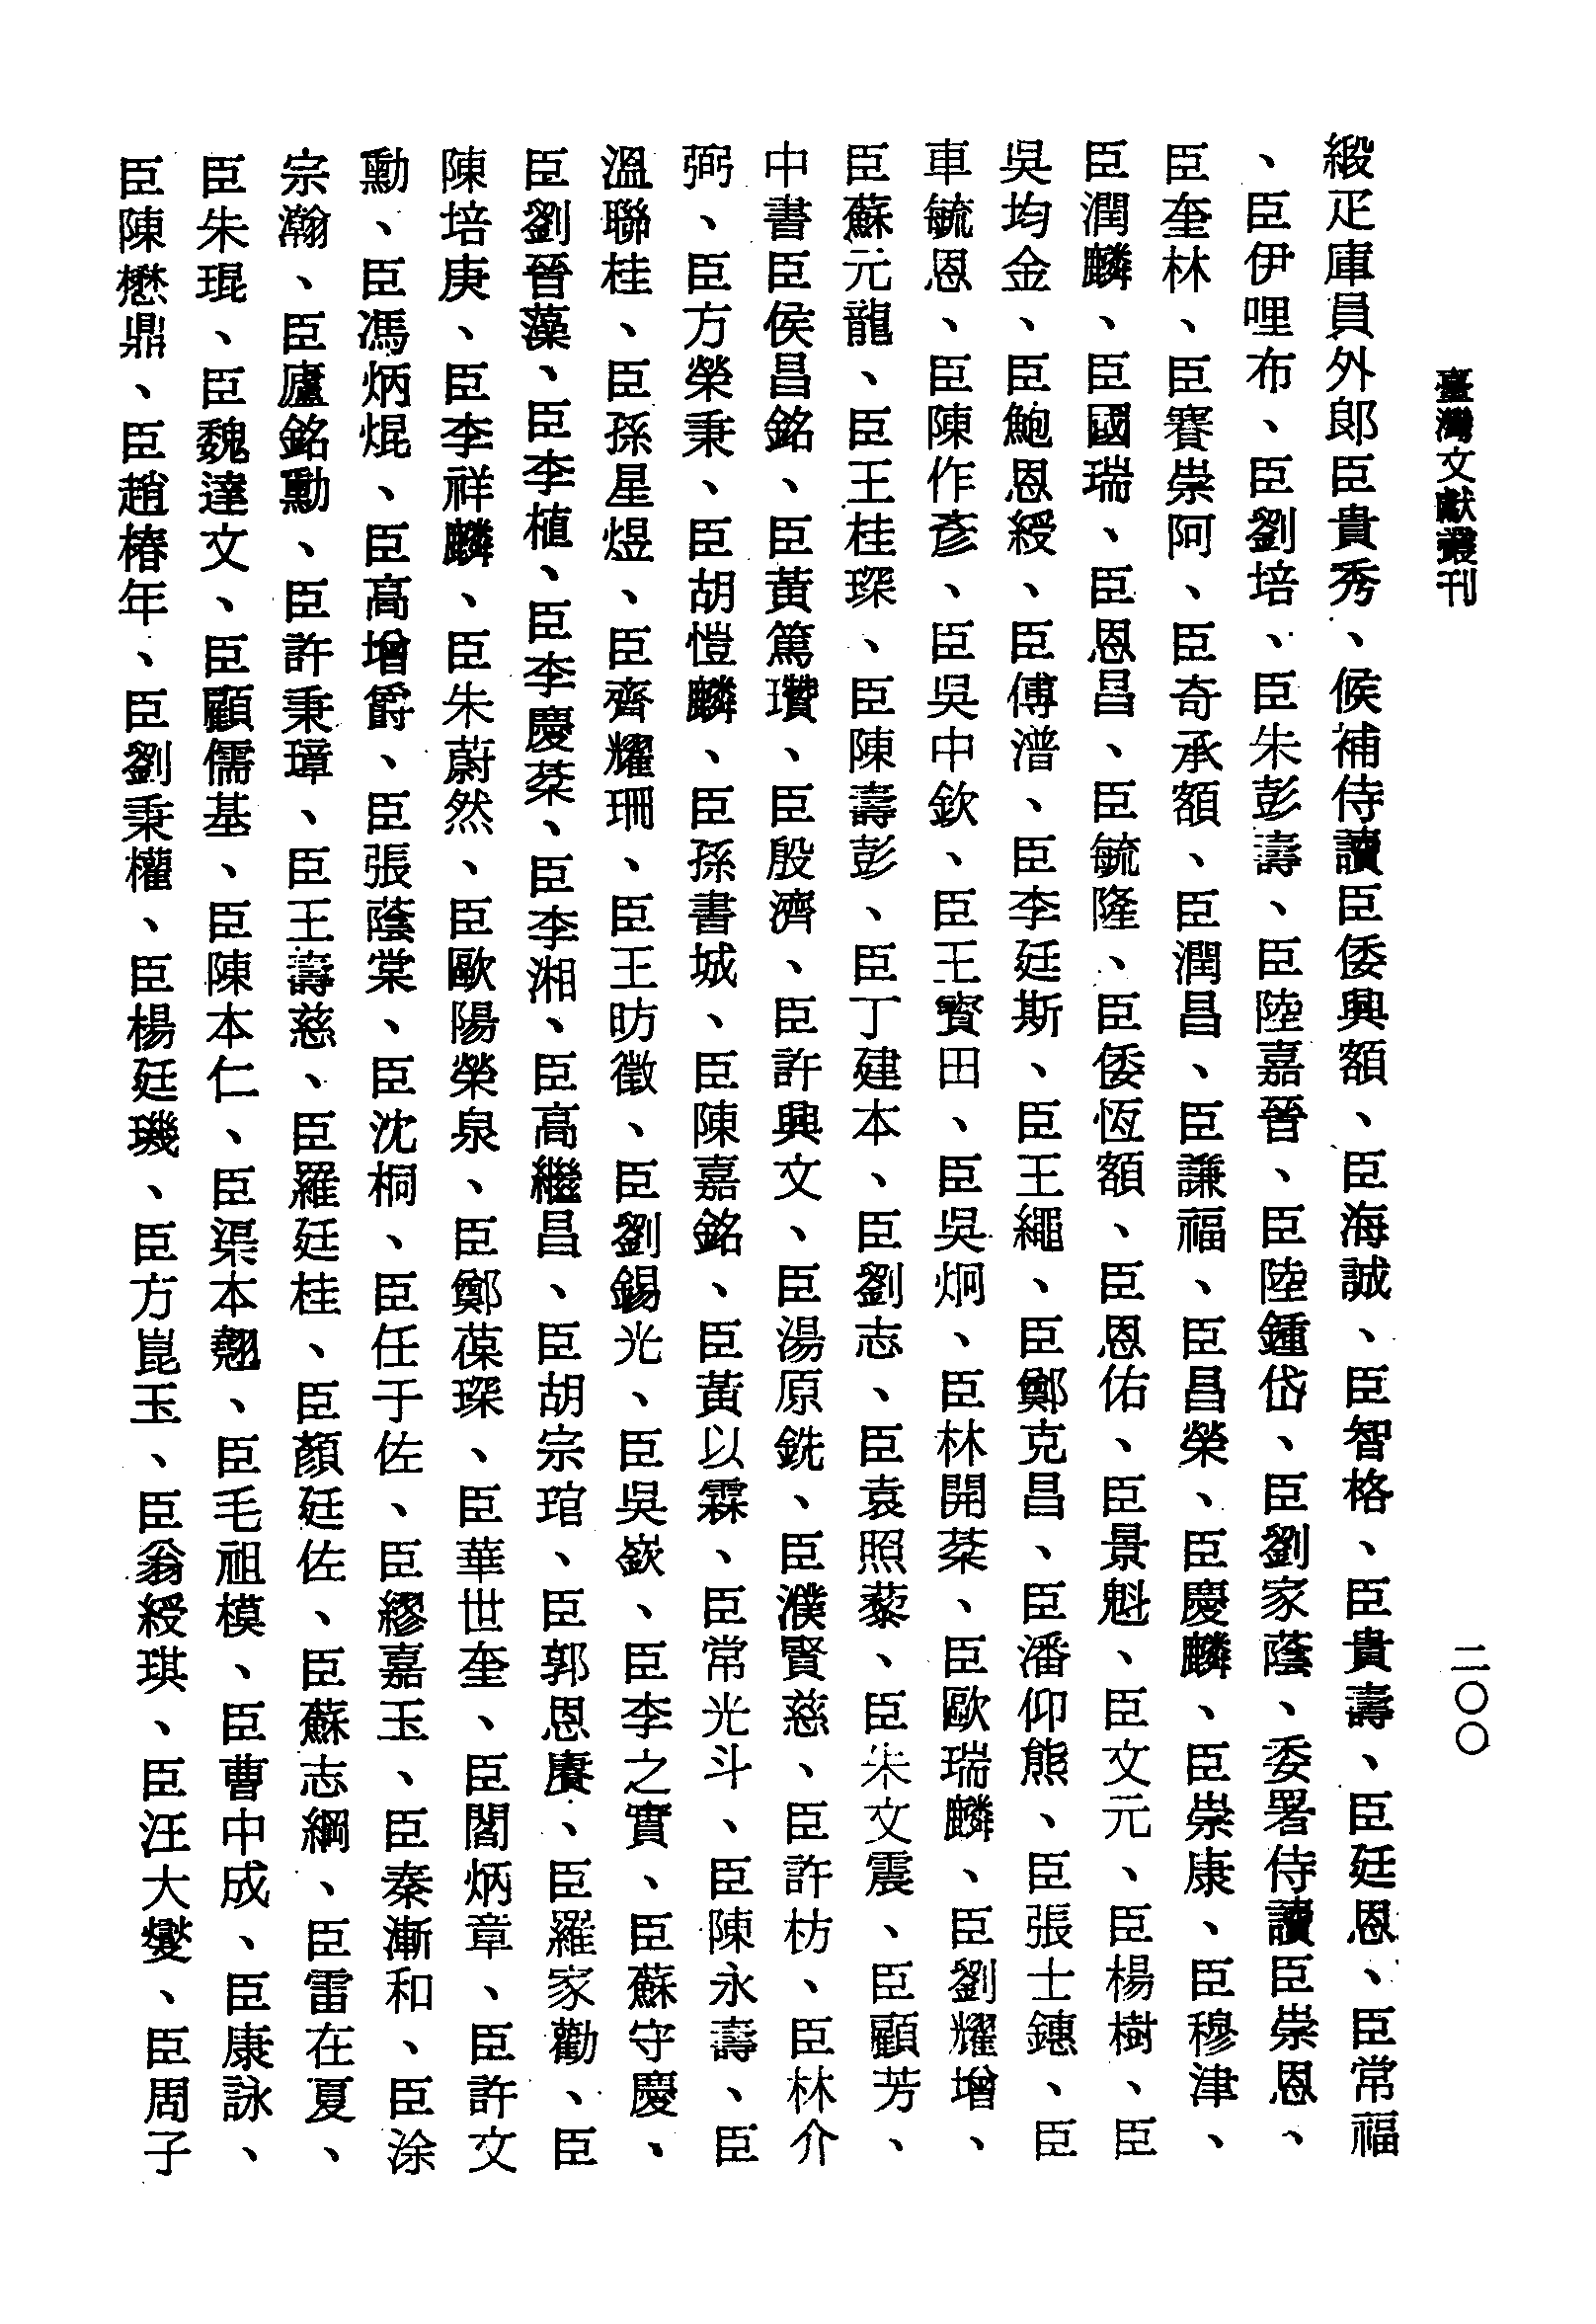 臺灣文獻叢刊
二〇〇
緞疋庫員外郎臣貴秀、候補侍讀臣倭興額、臣海誠、臣智格、臣貴壽、臣廷恩、臣常福
、臣伊哩布、臣劉培、臣朱彭壽、臣陸嘉晉、臣陸鍾岱、臣劉家蔭、委署侍讀臣崇恩、
臣奎林、臣賽崇阿、臣奇承額、臣潤昌、臣謙福、臣昌榮、臣慶麟、臣崇康、臣穆津、
臣潤麟、臣國瑞、臣恩昌、臣毓隆、臣倭恆額、臣恩佑、臣景魁、臣文元、臣楊樹、臣
吳均金、臣鮑恩綬、臣傅潽、臣李廷斯、臣王繩、臣鄭克昌、臣潘仰熊、臣張士鏸、臣
車毓恩、臣陳作彥、臣吳中欽、臣王寳田、臣吳炯、臣林開棻、臣歐瑞麟、臣劉耀增、
臣蘇元龍、臣王桂琛、臣陳壽彭、臣丁建本、臣劉志、臣袁照藜、臣朱文震、臣顧芳、
中書臣侯昌銘、臣黃篤瓚、臣殷濟、臣許興文、臣湯原銑、臣濮賢慈、臣許枋、臣林介
弼、臣方榮秉、臣胡愷麟、臣孫書城、臣陳嘉銘、臣黃以霖、臣常光斗、臣陳永壽、臣
溫聯桂、臣孫星煜、臣齊耀珊、臣王昉徵、臣劉錫光、臣吳嶔、臣李之實、臣蘇守慶、
臣劉晉藻、臣李植、臣李慶棻、臣李湘、臣高繼昌、臣胡宗琯、臣郭恩賡、臣羅家勸、臣
陳培庚、臣李祥麟、臣朱蔚然、臣歐陽榮泉、臣鄭葆琛、臣華世奎、臣閻炳章、臣許文
勳、臣馮炳焜、臣高增爵、臣張蔭棠、臣沈桐、臣任于佐、臣繆嘉玉、臣秦漸和、臣涂
宗瀚、臣廬銘勳、臣許秉璋、臣王壽慈、臣羅廷桂、臣顏廷佐、臣蘇志綱、臣雷在夏、
臣朱琨、臣魏達文、臣顧儒基、臣陳本仁、臣渠本翹、臣毛祖模、臣曹中成、臣康詠、
臣陳懋鼎、臣趙椿年、臣劉秉權、臣楊廷璣、臣方崑玉、臣翁綬琪、臣汪大燮、臣周子